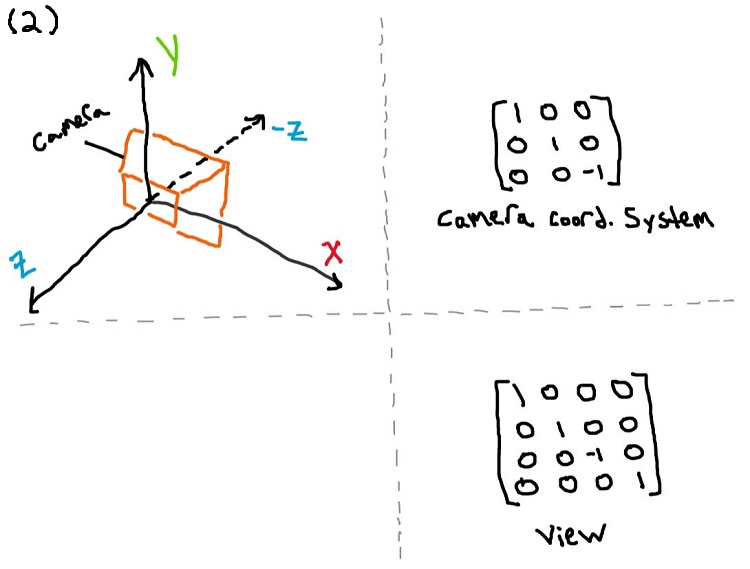 (2)
Y
camera
-Z
Z
X
1 0 0
0 1 0
0 0 -1
Camera coord. System
1 0 0 0
0 1 0 0
0 0 -1 0
0 0 0 1
View